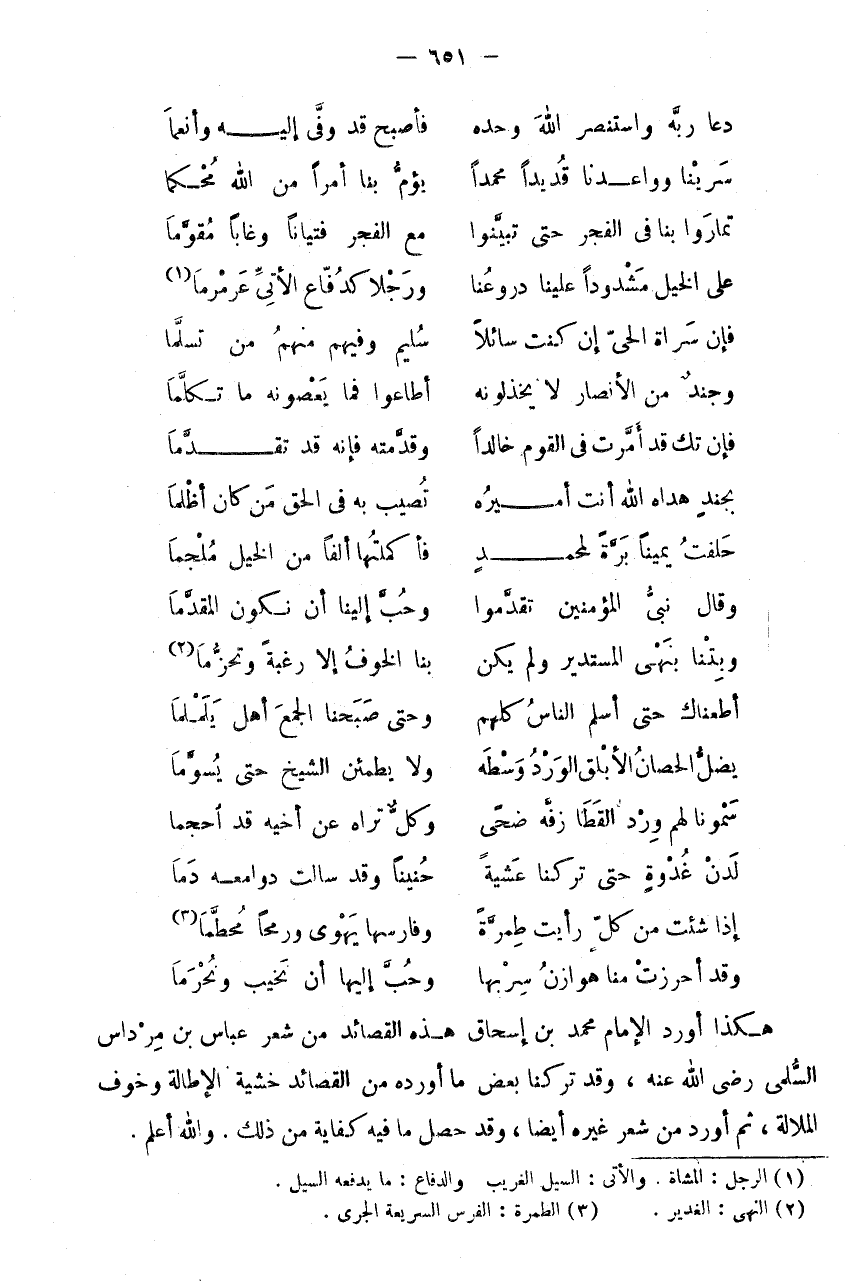 — ٦٥١ —
دعا ربَّه واستنصر اللهَ وحده فأصبح قد وفَّى إليـــه وأنعماَ
سَريْنا وواعـدنا قُديداً محمداً يؤمُّ بنا أمراً من الله مُحْـكما
تمارَوا بنا فى الفجر حتى تبيَّنوا مع الفجر فتياناً وغاباً مُقوَّماَ
على الخيل مَشْدوداً علينا دروعُنا ورَجْلا كدُفّاع الأتِىِّ عَرمْرماَ(١)
فإن سَراة الحىّ إن كنت سائلاً سُليم وفيهم منهمُ من تسلَّما
وجندٌ من الأنصار لا يخذلونه أطاعوا فما يَعْصونه ما تـكلَّماَ
فإن تك قد أمَّرت فى القوم خالداً وقدَّمته فإنه قد تقـــدَّماَ
بجندٍ هداه الله أنت أمـــيرُه تُصيب به فى الحق مَن كان أظْلماَ
حَلفتُ يميناً بَرَّةً لمحمـــدٍ فأكملتُها ألفاً من الخيل مُلْجماَ
وقال نبىُّ المؤمنين تقدَّموا وحُبَّ إلينا أن نـكون المقدَّماَ
وبِتْنا بنَهْى المستدير ولم يكن بنا الخوفُ إلا رغبةً وتحزُّماَ(٢)
أطعناك حتى أسلم الناسُ كلهم وحتى صَبَحنا الجمعَ أهل يَلَمْـلماَ
يضلُّ الحصانُ الأبْلق الوَرْدُ وَسْطَه ولا يطمئن الشيخ حتى يُسوَّماَ
سَمْونا لهم وِرْد القَطَا زفَّه ضحًى وكلٌّ تراه عن أخيه قد أحجما
لَدنْ غُدْوةٍ حتى تركنا عَشيةً حُنيناً وقد سالت دوامعـه دَماَ
إذا شئت من كلٍّ رأيت طِمرَّةً وفارسها يَهْوى ورمحاً مُحطَّماَ(٣)
وقد أحرزتْ منا هوازنُ سِرْبها وحُبَّ إليها أن نَخيب ونُحْرَماَ
هـكذا أورد الإمام محمد بن إسحاق هـذه القصائد من شعر عباس بن مِرْداس
السُّلمى رضى الله عنه ، وقد تركنا بعض ما أورده من القصائد خشية الإطالة وخوف
الملالة ، ثم أورد من شعر غيره أيضا ، وقد حصل ما فيه كفاية من ذلك . والله أعلم .
(١) الرجل : المشاة . والأتى : السيل الغريب والدفاع : ما يدفعه السيل .
(٢) النهى : الغدير . (٣) الطمرة : الفرس السريعة الجرى .